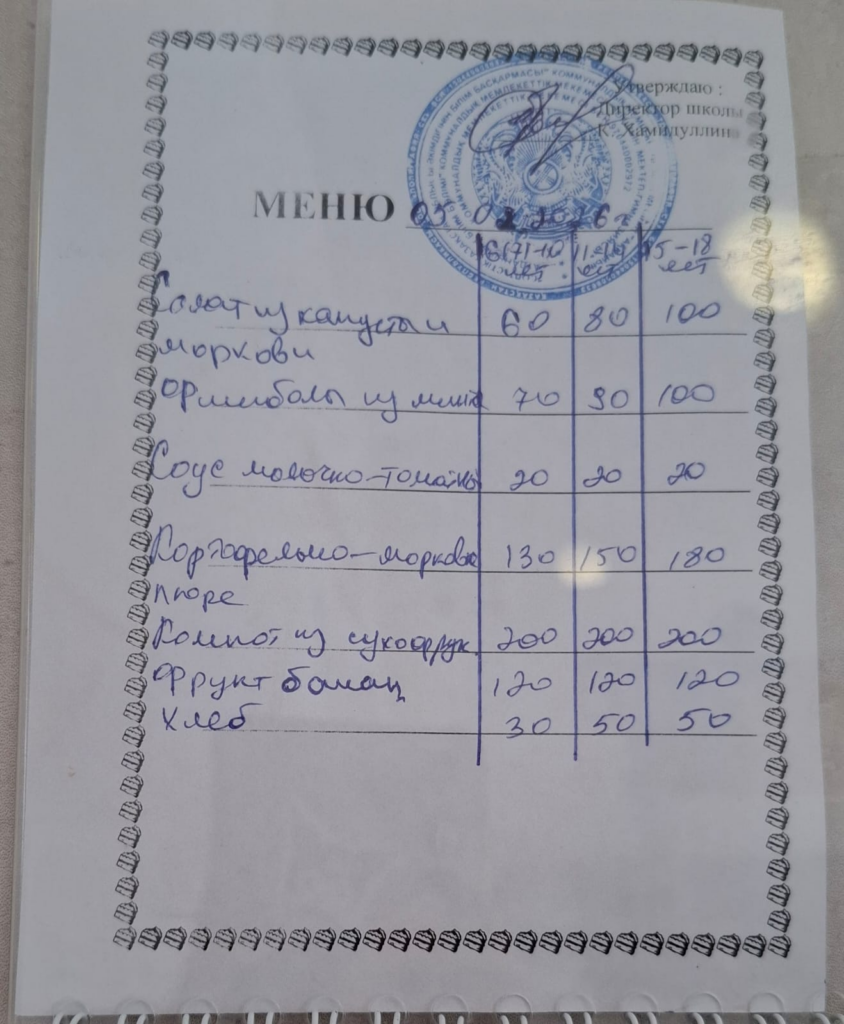 Утверждаю :
Директор школы
К. Хамидуллина
МЕНЮ 05 02 2026 г.
6(7)-10 лет 11-14 лет 15-18 лет
Салат из капусты и 60 80 100
моркови
из 70 90 100
Соус молочно-томатны 20 20 20
Картофельно-морковн 130 150 180
пюре
Компот из сухофрук. 200 200 200
Фрукт банан 120 120 120
Хлеб 30 50 50